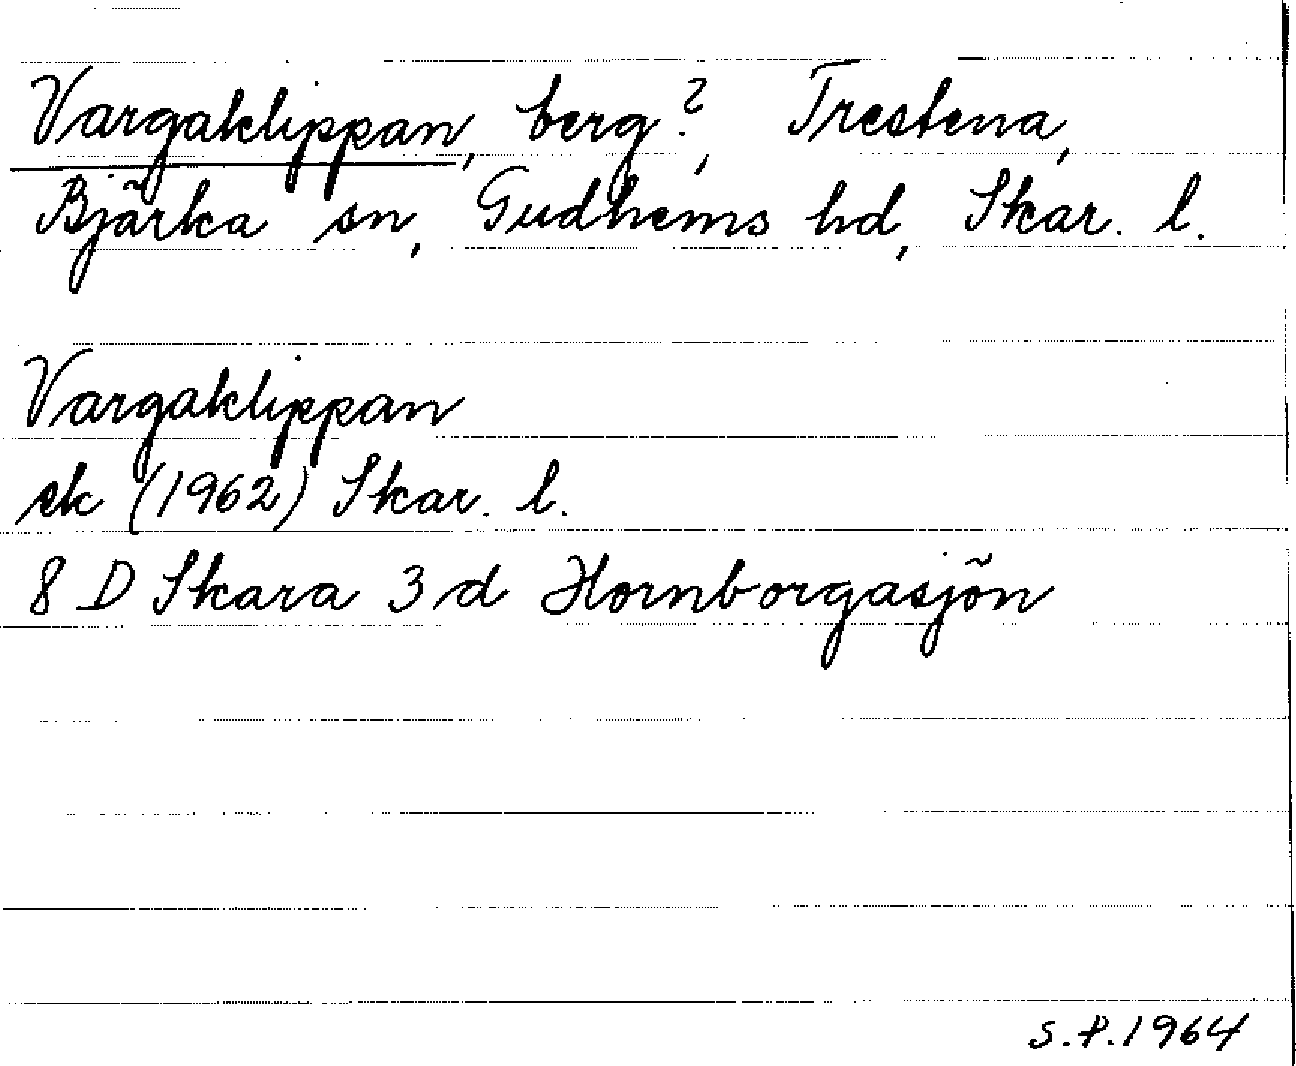 Vargaklippan, berg?, Trestena,
Bjärka sn, Gudhems hd, Skar. l.
Vargaklippan
ek (1962) Skar. l.
8 D Skara 3 d Hornborgasjön
S.P. 1964